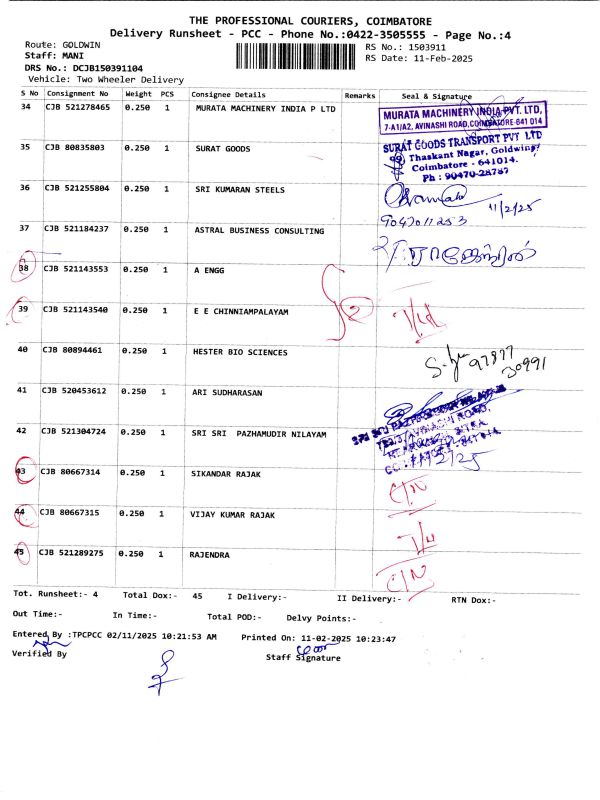 THE PROFESSIONAL COURIERS, COIMBATORE
Delivery Runsheet - PCC - Phone No.:0422-3505555 - Page No.:4
Route: GOLDWIN
RS No.: 1503911
Staff: MANI
RS Date: 11-Feb-2025
DRS No.: DCJB150391104
Vehicle: Two Wheeler Delivery
S No Consignment No Weight PCS Consignee Details Remarks Seal & Signature
34 CJB 521278465 0.250 1 MURATA MACHINERY INDIA P LTD
MURATA MACHINERY INDIA PVT. LTD,
7-A1/A2, AVINASHI ROAD, COIMBATORE-641 014
35 CJB 80835803 0.250 1 SURAT GOODS
SURAT GOODS TRANSPORT PVT LTD
99 Thaskant Nagar, Goldwing
Coimbatore - 641014.
Ph : 90470-28787
36 CJB 521255804 0.250 1 SRI KUMARAN STEELS
11/2/25
9047011253
37 CJB 521184237 0.250 1 ASTRAL BUSINESS CONSULTING
38 CJB 521143553 0.250 1 A ENGG
39 CJB 521143540 0.250 1 E E CHINNIAMPALAYAM
2
40 CJB 80894461 0.250 1 HESTER BIO SCIENCES
97877
30991
41 CJB 520453612 0.250 1 ARI SUDHARASAN
42 CJB 521304724 0.250 1 SRI SRI PAZHAMUDIR NILAYAM
43 CJB 80667314 0.250 1 SIKANDAR RAJAK
C/N
44 CJB 80667315 0.250 1 VIJAY KUMAR RAJAK
45 CJB 521289275 0.250 1 RAJENDRA
C/N
Tot. Runsheet:- 4 Total Dox:- 45 I Delivery:- II Delivery:- RTN Dox:-
Out Time:- In Time:- Total POD:- Delvy Points:-
Entered By :TPCPCC 02/11/2025 10:21:53 AM Printed On: 11-02-2025 10:23:47
Verified By Staff Signature